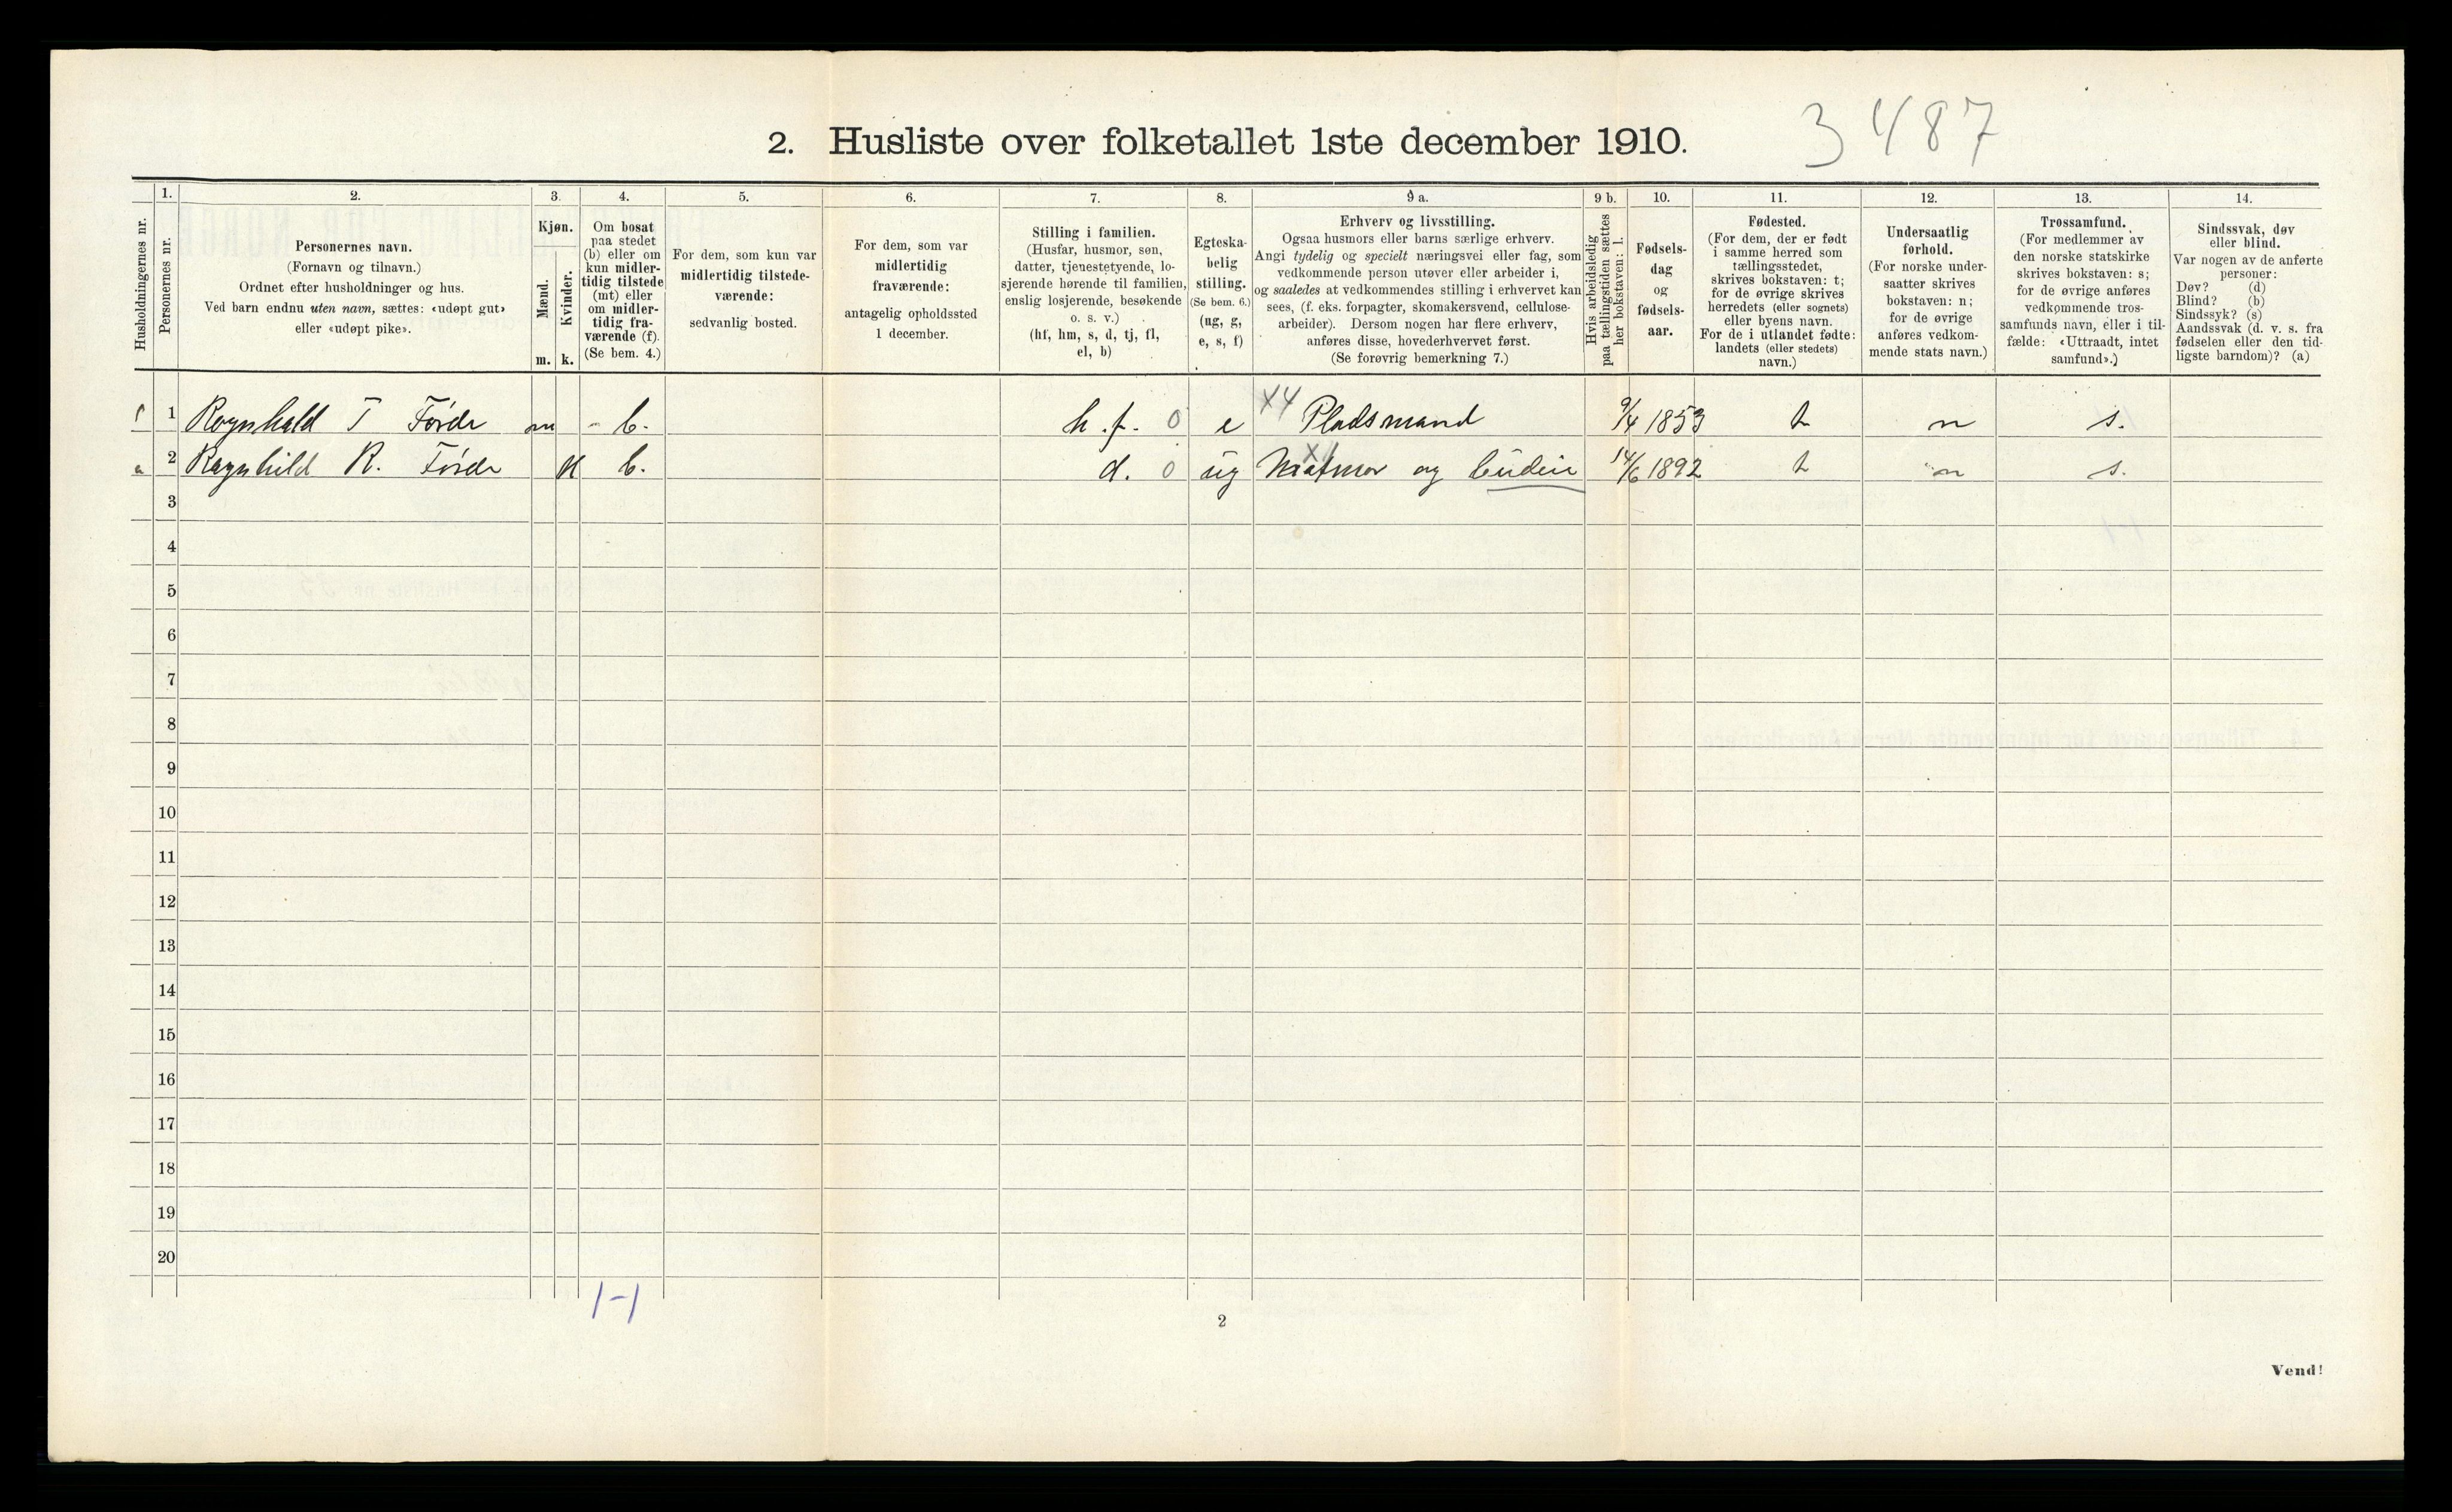 3487
2. Husliste over folketallet 1ste december 1910.
Husholdningernes nr.
1.
Personernes nr.
2.
Personernes navn.
(Fornavn og tilnavn.)
Ordnet efter husholdninger og hus.
Ved barn endnu uten navn, sættes: «udøpt gut»
eller «udøpt pike».
3.
Kjøn.
Mænd.
Kvinder.
m. k.
4.
Om bosat
paa stedet
(b) eller om
kun midler-
tidig tilstede
(mt) eller
om midler-
tidig fra-
værende (f).
(Se bem. 4.)
5.
For dem, som kun var
midlertidig tilstede-
værende:
sedvanlig bosted.
6.
For dem, som var
midlertidig
fraværende:
antagelig opholdssted
1 december.
7.
Stilling i familien.
(Husfar, husmor, søn,
datter, tjenestetyende, lo-
sjerende hørende til familien,
enslig losjerende, besøkende
o. s. v.)
(hf, hm, s, d, tj, fl,
el, b)
8.
Egteska-
belig
stilling.
(Se bem. 6.)
(ug, g,
e, s, f)
9 a.
Erhverv og livsstilling.
Ogsaa husmors eller barns særlige erhverv.
Angi tydelig og specielt næringsvei eller fag, som
vedkommende person utøver eller arbeider i,
og saaledes at vedkommendes stilling i erhvervet kan
sees, (f. eks. forpagter, skomakersvend, cellulose-
arbeider). Dersom nogen har flere erhverv,
anføres disse, hovederhvervet først.
(Se forøvrig bemerkning 7.)
9 b.
Hvis arbeidsledig
paa tællingstiden sættes
her bokstaven: l.
10.
Fødsels-
dag
og
fødsels-
aar.
11.
Fødested.
(For dem, der er født
i samme herred som
tællingsstedet,
skrives bokstaven: t;
for de øvrige skrives
herredets (eller sognets)
eller byens navn.
For de i utlandet fødte:
landets (eller stedets)
navn.)
12.
Undersaatlig
forhold.
(For norske under-
saatter skrives
bokstaven: n;
for de øvrige
anføres vedkom-
mende stats navn.)
13.
Trossamfund.
(For medlemmer av
den norske statskirke
skrives bokstaven: s;
for de øvrige anføres
vedkommende tros-
samfunds navn, eller i til-
fælde: «Uttraadt, intet
samfund».)
14.
Sindssvak, døv
eller blind.
Var nogen av de anførte
personer:
Døv? (d)
Blind? (b)
Sindssyk? (s)
Aandssvak (d. v. s. fra
fødselen eller den tid-
ligste barndom)? (a)
1 Rognhald T Förde m - b. h.f. 0 e X4 Pladsmand 9/4 1853 t n s.
2 Ragnhild R. Förde k b. d. 0 ug Matmor og budeie 14/6 1892 t n s.
3
4
5
6
7
8
9
10
11
12
13
14
15
16
17
18
19
20
1-1
2
Vend!